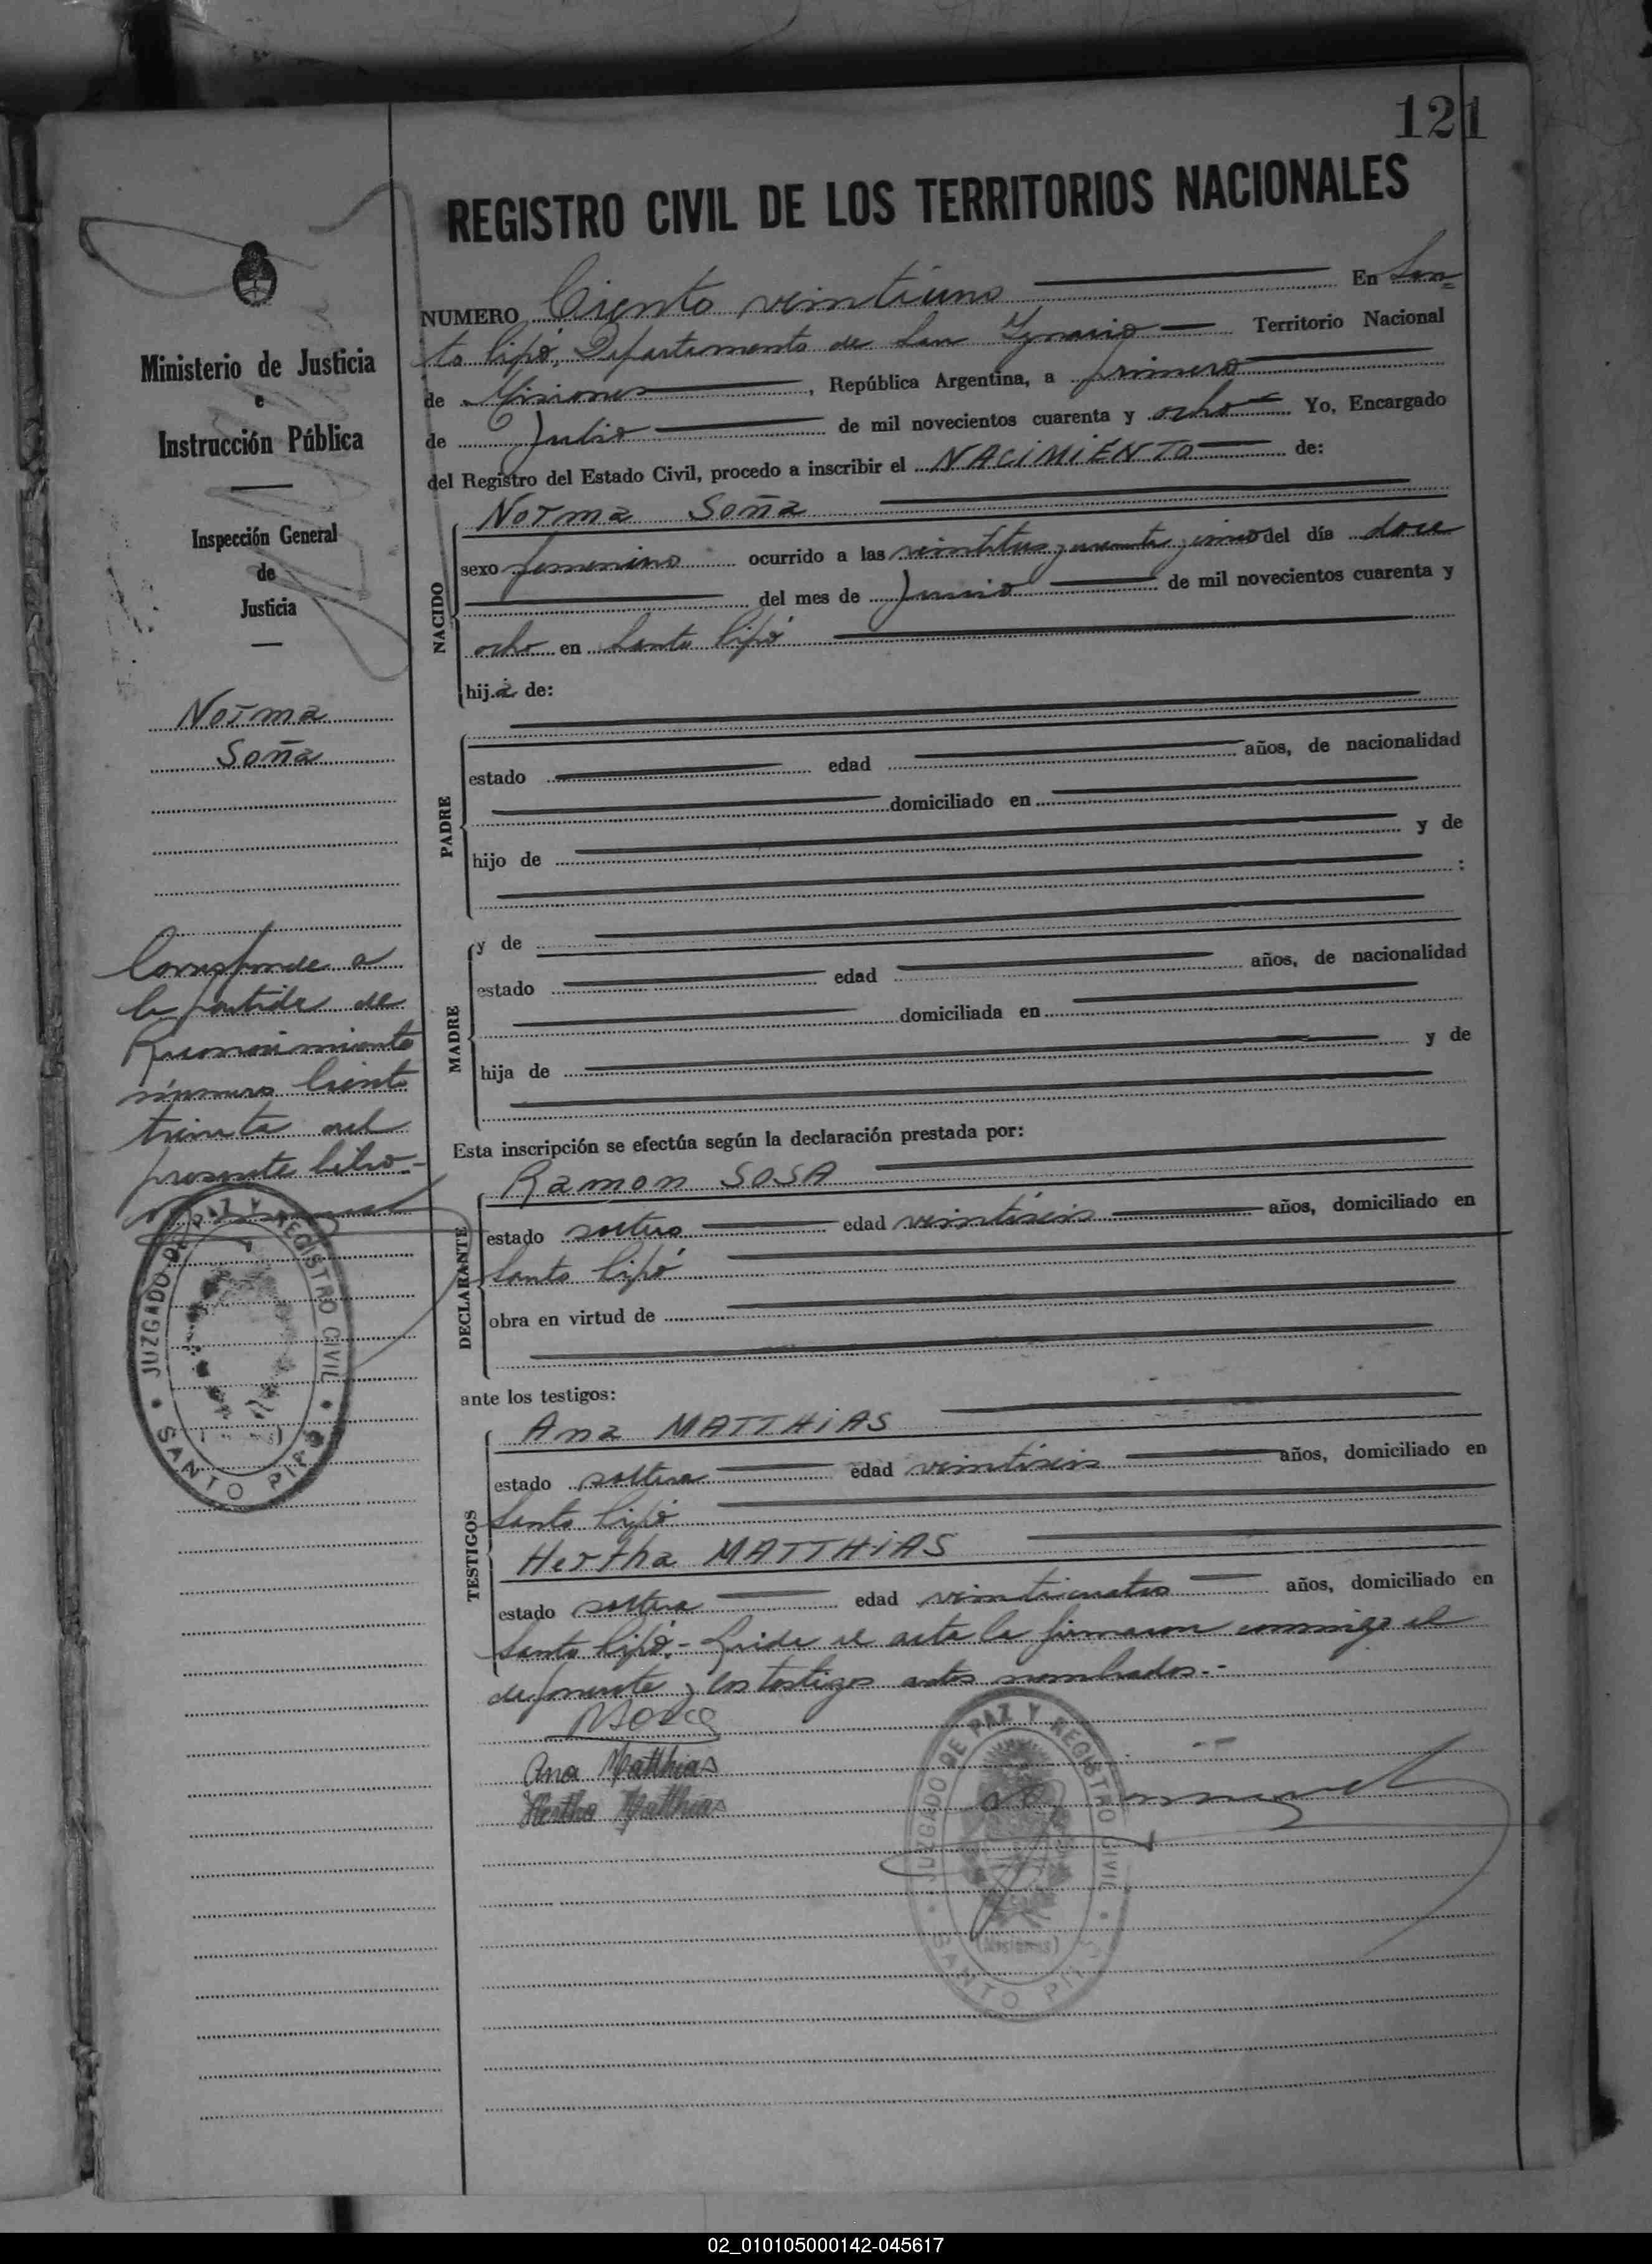 121
REGISTRO CIVIL DE LOS TERRITORIOS NACIONALES
NUMERO Ciento veintiuno En San=
to Pipó, Departamento de San Ygnacio Territorio Nacional
de Misiones, República Argentina, a primero
de Julio de mil novecientos cuarenta y ocho Yo, Encargado
del Registro del Estado Civil, procedo a inscribir el NACIMIENTO de:
NACIDO
Norma Soña
sexo femenino ocurrido a las veintitres y cuarenta y cinco del día doce
del mes de Junio de mil novecientos cuarenta y
ocho en Santo Pipó
hija de:
PADRE
estado edad años, de nacionalidad
domiciliado en
hijo de y de
:
MADRE
y de
estado edad años, de nacionalidad
domiciliada en
hija de y de
Esta inscripción se efectúa según la declaración prestada por:
DECLARANTE
Ramón SOSA
estado soltero edad veintiseis años, domiciliado en
Santo Pipó
obra en virtud de
ante los testigos:
TESTIGOS
Ana MATTHIAS
estado soltera edad veintiseis años, domiciliado en
Santo Pipó
Hertha MATTHIAS
estado soltera edad veinticuatro años, domiciliado en
Santo Pipó.- Leida el acta la firmaron conmigo el
deponente y los testigos antes nombrados.-
RSosa
Ana Matthias
Hertha Matthias
JUZGADO DE PAZ Y REGISTRO CIVIL
(Misiones)
SANTO PIPÓ
Ministerio de Justicia
e
Instrucción Pública
Inspección General
de
Justicia
Norma
Soña
Corresponde a
la partida de
Reconocimiento
número Ciento
treinta del
presente libro.-
JUZGADO DE PAZ Y REGISTRO CIVIL
SANTO PIPÓ
02_010105000142-045617